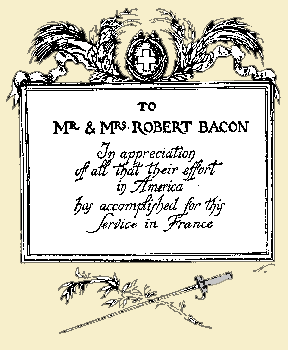 TO
MR. & MRS. ROBERT BACON
In appreciation
of all that their effort
in America
has accomplished for this
service in France